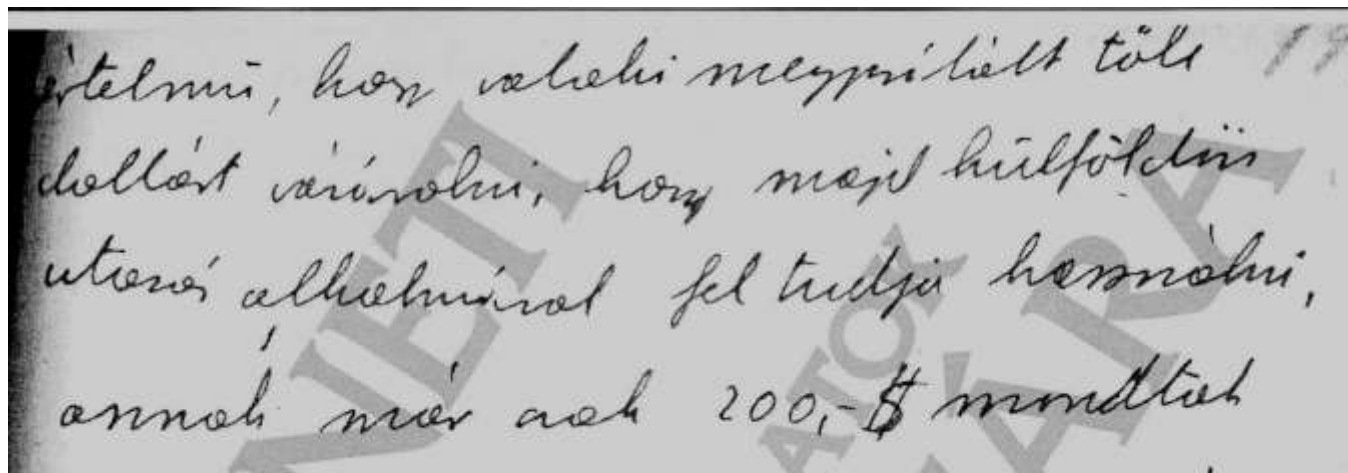 értelmű, hogy valaki megpróbált tőle 19
dollárt vásárolni, hogy majd külföldi
utazás alkalmával fel tudja használni,
annak már csak 200,-$ mondtak
NETI
ATOK
ÁRA